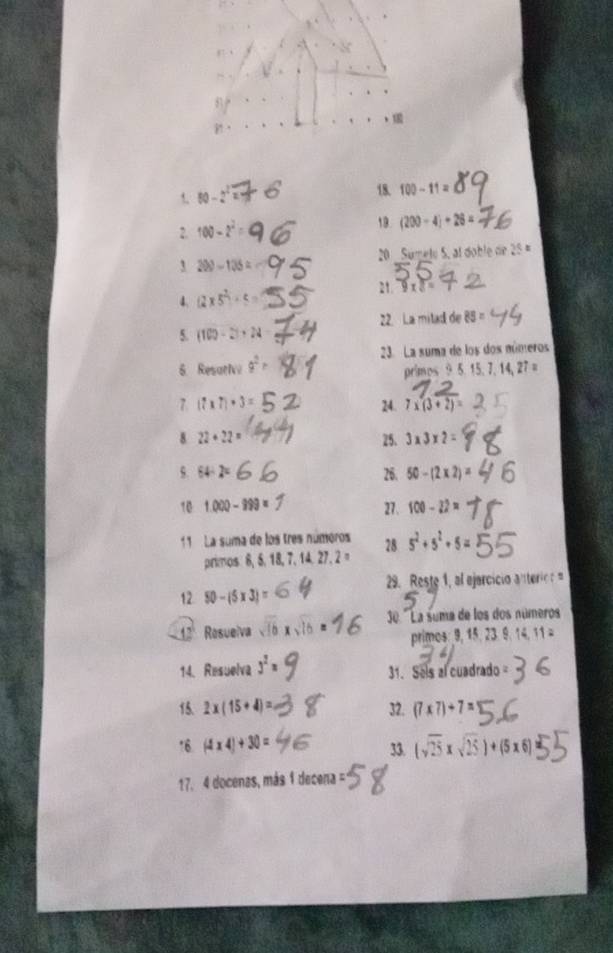 1. 80 - 2² = 76
2. 100 - 2² = 96
3. 200 - 105 = 95
4. (2 x 5²) + 5 = 55
5. (100 - 2) + 24 74
6. Resuelva 9² = 81
7. (7 x 7) + 3 = 52
8. 22 + 22 = 44
9. 64 + 2 = 66
10. 1.000 - 999 = 1
11. La suma de los tres números
primos: 6, 5, 18, 7, 14, 27, 2 =
12. 50 - (5 x 3) = 64
13. Resuelva √16 x √16 = 16
14. Resuelva 3² = 9
15. 2 x (15 + 4) = 38
16. (4 x 4) + 30 = 46
17. 4 docenas, más 1 decena = 58
18. 100 - 11 = 89
19. (200 ÷ 4) + 26 = 76
20. Súmele 5, al doble de 25 =
55
21. 9 x 8 = 72
22. La mitad de 88 = 44
23. La suma de los dos números
primos 9, 5, 15, 7, 14, 27 =
12
24. 7 x (3 + 2) = 35
25. 3 x 3 x 2 = 98
26. 50 - (2 x 2) = 46
27. 100 - 22 = 78
28. 5² + 5² + 5 = 55
29. Reste 1, al ejercicio anterior =
30. La suma de los dos números
primos: 9, 15, 23, 9, 14, 11 =
34
31. Seis al cuadrado = 36
32. (7 x 7) + 7 = 56
33. (√25 x √25) + (5 x 6) = 55